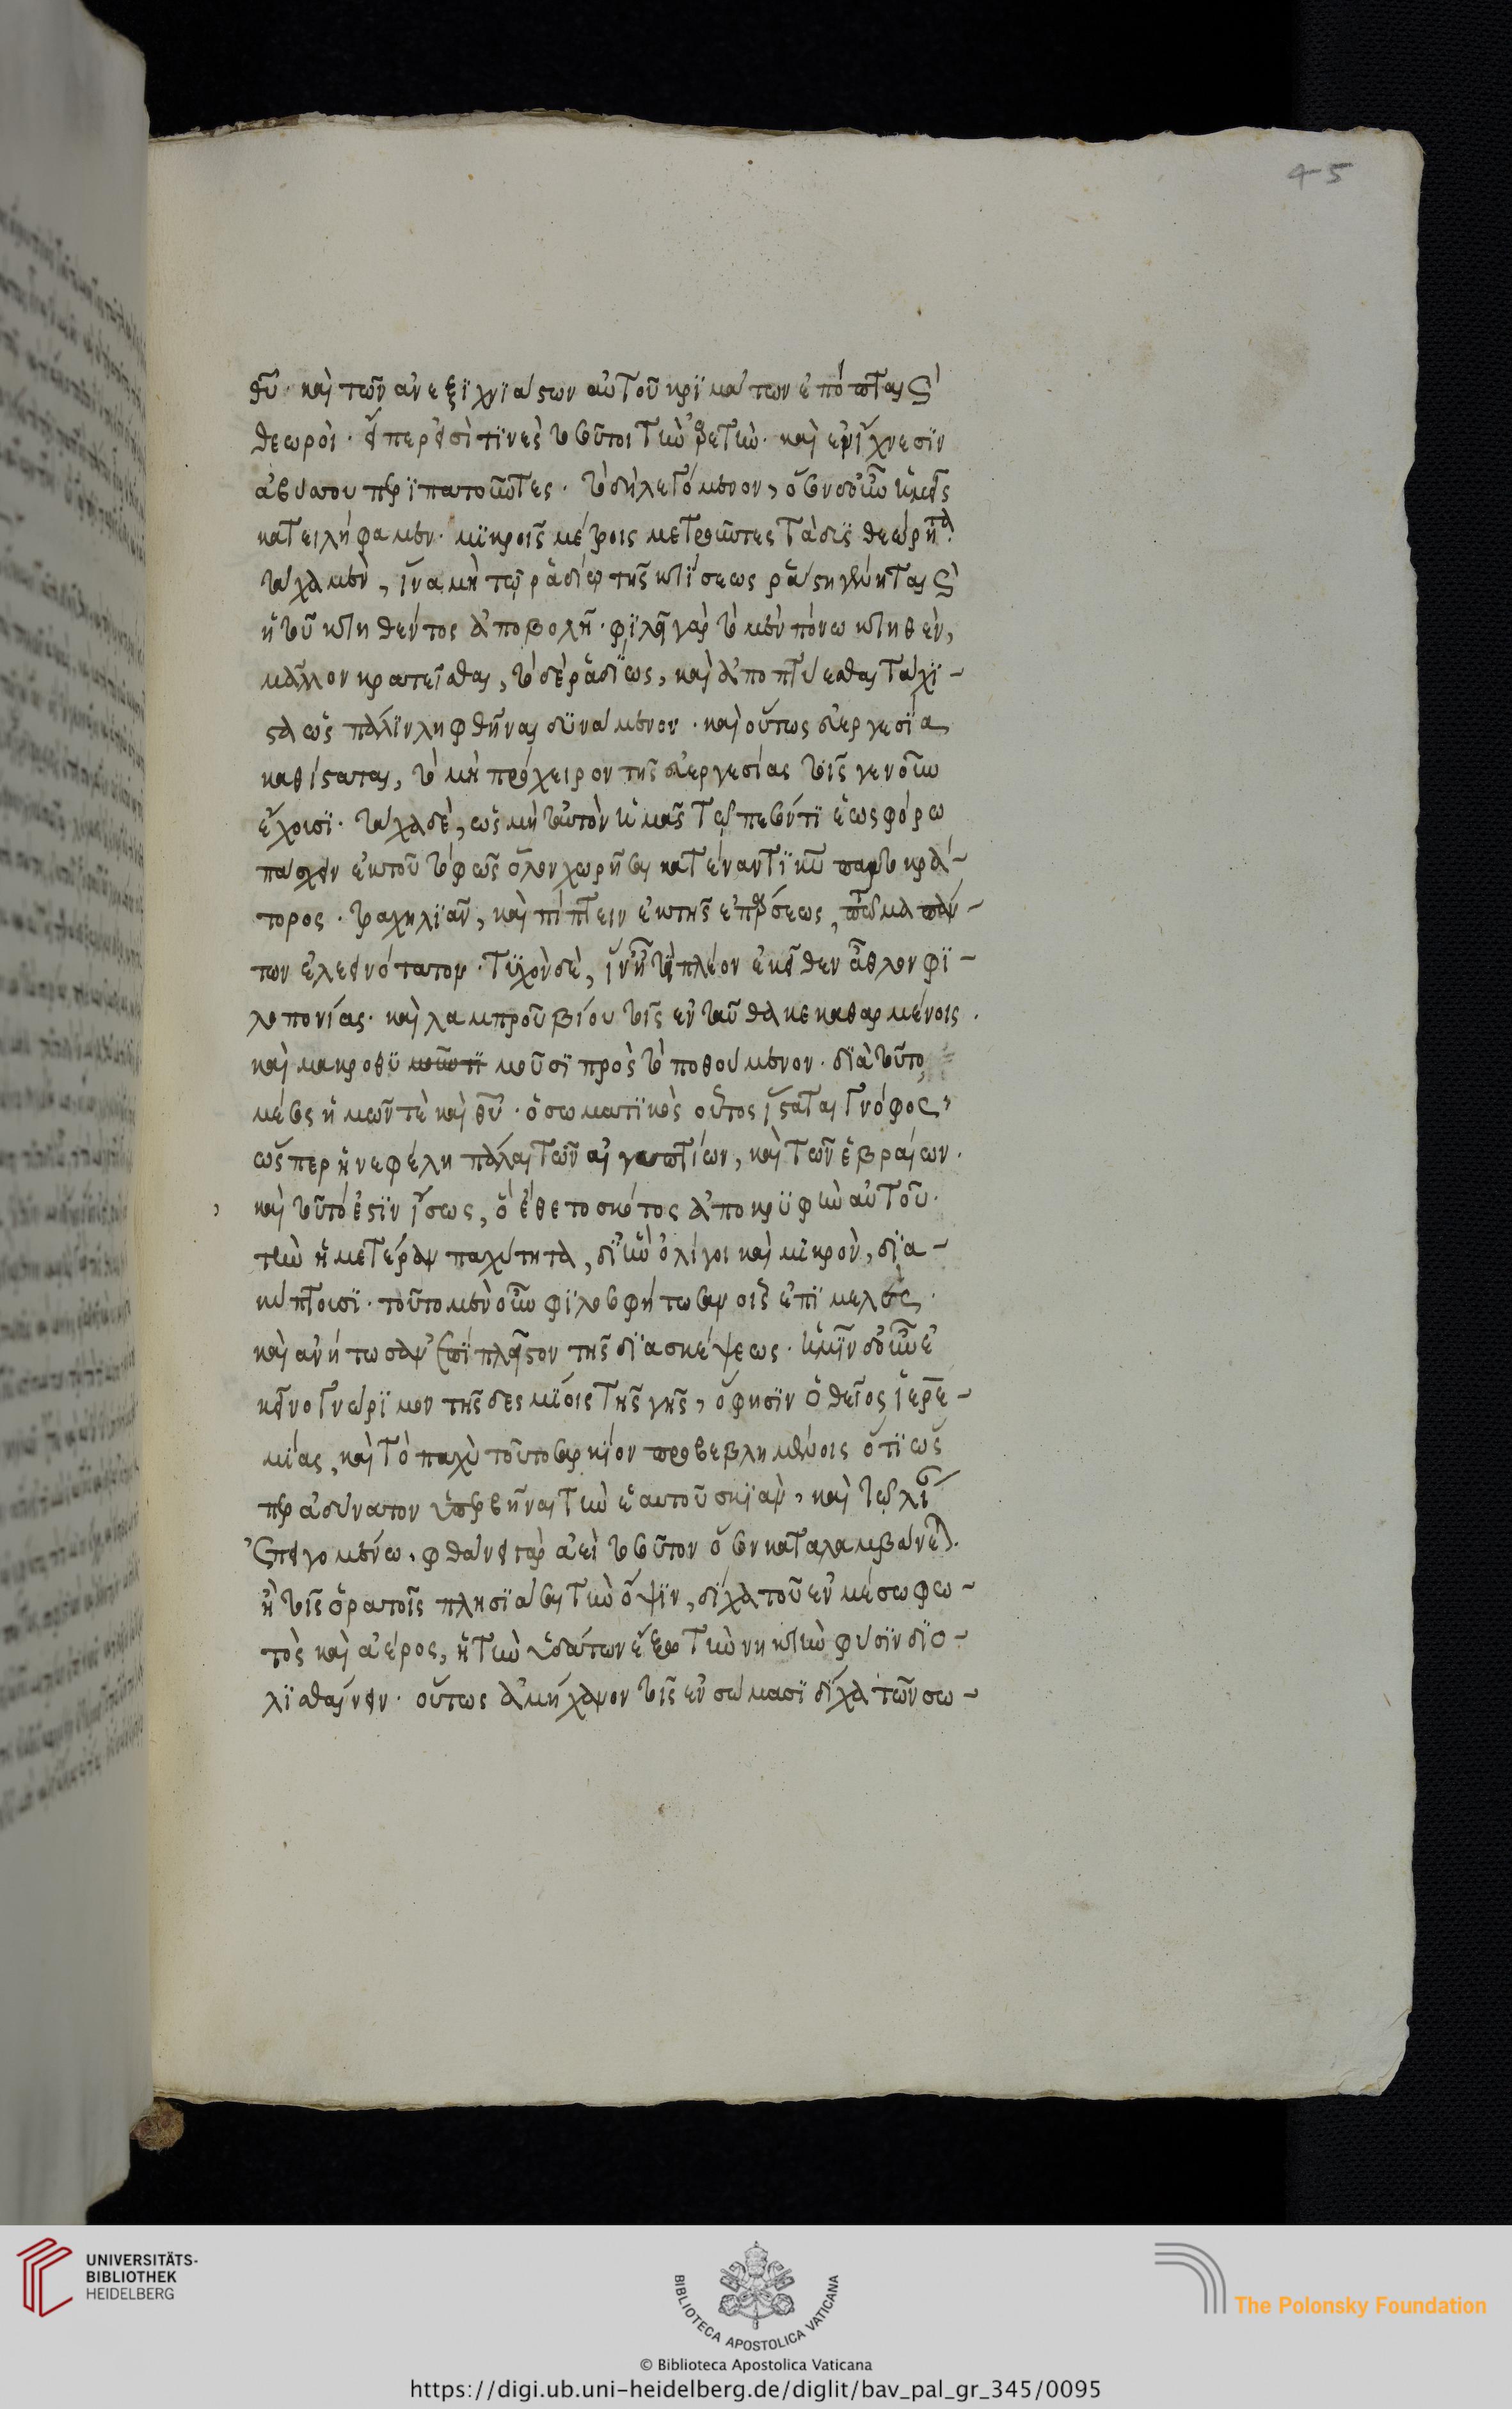 45
θυ̅· καὶ τῶν ἀνεξϊχνϊάστων αὐτοῦ κρϊμάτων ἐπόπται καὶ
θεωροὶ· εἴπερ εἰσὶ τϊνὲς τοσοῦτοι τὴν ἀρετὴν· καὶ ἐν ἴχνεσϊν
ἀβύσσου περϊπατοῦντες· τὸ δηλούμενον, ὅσον δ' οὖν ἡμεῖς
κατειλήφαμεν· μϊκροῖς μέτροις μετροῦντες τὰ δυσθεώρητα.
τάχα μὲν, ἵνα μὴ τῷ ῥαδίῳ τῆς κτίσεως ῥάστη γένηται καὶ
ἡ τοῦ κτηθέντος ἀποβολὴ· φϊλεῖ γὰρ τὸ μὲν πόνω κτηθὲν,
μᾶλλον κρατεῖσθαι, τὸ δὲ ῥαδΐως, καὶ ἀποπτύεσθαι τάχϊ-
στα ὡς πάλϊν ληφθῆναι δϋνάμενον· καὶ οὕτως εὐεργεσΐα
καθίσταται, τὸ μὴ πρόχειρον τῆς εὐεργεσίας τοῖς γε νοῦν
ἔχουσϊ· τάχα δὲ, ὡς μὴ ταυτὸν ἡμᾶς τῷ πεσόντϊ ἑωσφόρω
πάσχειν ἐκ τοῦ τὸ φῶς ὅλον χωρῆσαι κατέναντϊ κυ̅ παντοκρά-
τορος· τραχηλϊᾶν, καὶ πίπτειν ἐκ τῆς ἐπάρσεως, πτῶμα πάν-
των ἐλεεινότατον· τϋχὸν δὲ, ἵν' ᾖ τι πλέον ἐκεῖθεν ἆθλον φϊ-
λοπονίας· καὶ λαμπροῦ βίου τοῖς ἐνταῦθα κεκαθαρμένοις.
καὶ μακροθϋμοῦσϊ πρὸς τὸ ποθούμενον· δϊὰ τοῦτο
μέσος ἡμῶν τὲ καὶ θυ̅· ὁ σωματϊκὸς οὗτος ἵσταται γνόφος,
ὥσπερ ἡ νεφέλη πάλαι τῶν αἰγυπτίων, καὶ τῶν ἑβραίων.
καὶ τοῦτό ἐστϊν ἴσως, ὃ ἔθετο σκότος ἀποκρϋφὴν αὐτοῦ.
τὴν ἡμετέραν παχύτητα, δϊ' ἣν ὀλίγοι καὶ μικρὸν, δϊα-
κύπτουσϊ· τοῦτο μὲν οὖν φϊλοσοφήτωσαν οἷς ἐπϊμελὲς.
καὶ ἀνήτωσαν ἐπΐπλεῖστον τῆς δϊασκέψεως· ἡμῖν δ' οὖν ἐ
κεῖνο γνώρϊμον τῆς δεσμΐοις τῆς γῆς, ὅ φησϊν ὁ θεῖος ἱερε-
μίας, καὶ τὸ παχὺ τοῦτο σαρκίον προβεβλημένοις ὅτϊ ὥσ
περ ἀδύνατον ὑπερβῆναι τὴν ἑαυτοῦ σκϊὰν, καὶ τῷ λίαν
ἐπειγομένω, φθάνει γὰρ ἀεὶ τοσοῦτον ὅσον καταλαμβάνεται.
ἢ τοῖς ὁρατοῖς πλησϊάσαι τὴν ὄψϊν, δίχα τοῦ ἐν μέσω φω-
τὸς καὶ ἀέρος, ἢ τὴν ὑδάτων ἔξω τὴν νηκτὴν φύσϊν δϊο-
λϊσθαίνειν· οὕτως ἀμήχανον τοῖς ἐν σώμασϊ δίχα τῶν σω-
UNIVERSITÄTS-
BIBLIOTHEK
HEIDELBERG
BIBLIOTECA APOSTOLICA VATICANA
The Polonsky Foundation
© Biblioteca Apostolica Vaticana
https://digi.ub.uni-heidelberg.de/diglit/bav_pal_gr_345/0095